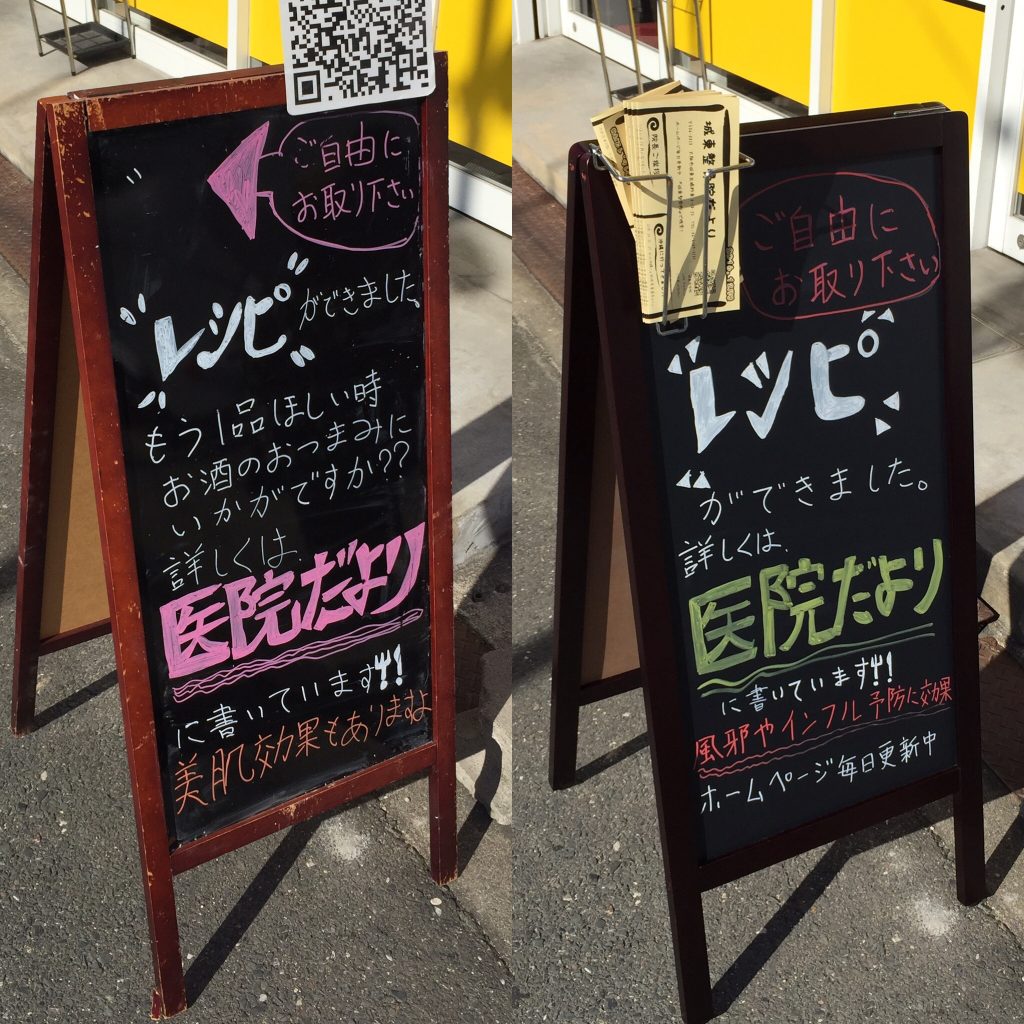 ご自由に
お取り下さい
レシピができました。
もう1品ほしい時
お酒のおつまみに
いかがですか??
詳しくは、
医院だより
に書いています!!
美肌効果もありますよ
ご自由に
お取り下さい
レシピ
ができました。
詳しくは、
医院だより
に書いています!!
風邪やインフル予防に効果
ホームページ毎日更新中